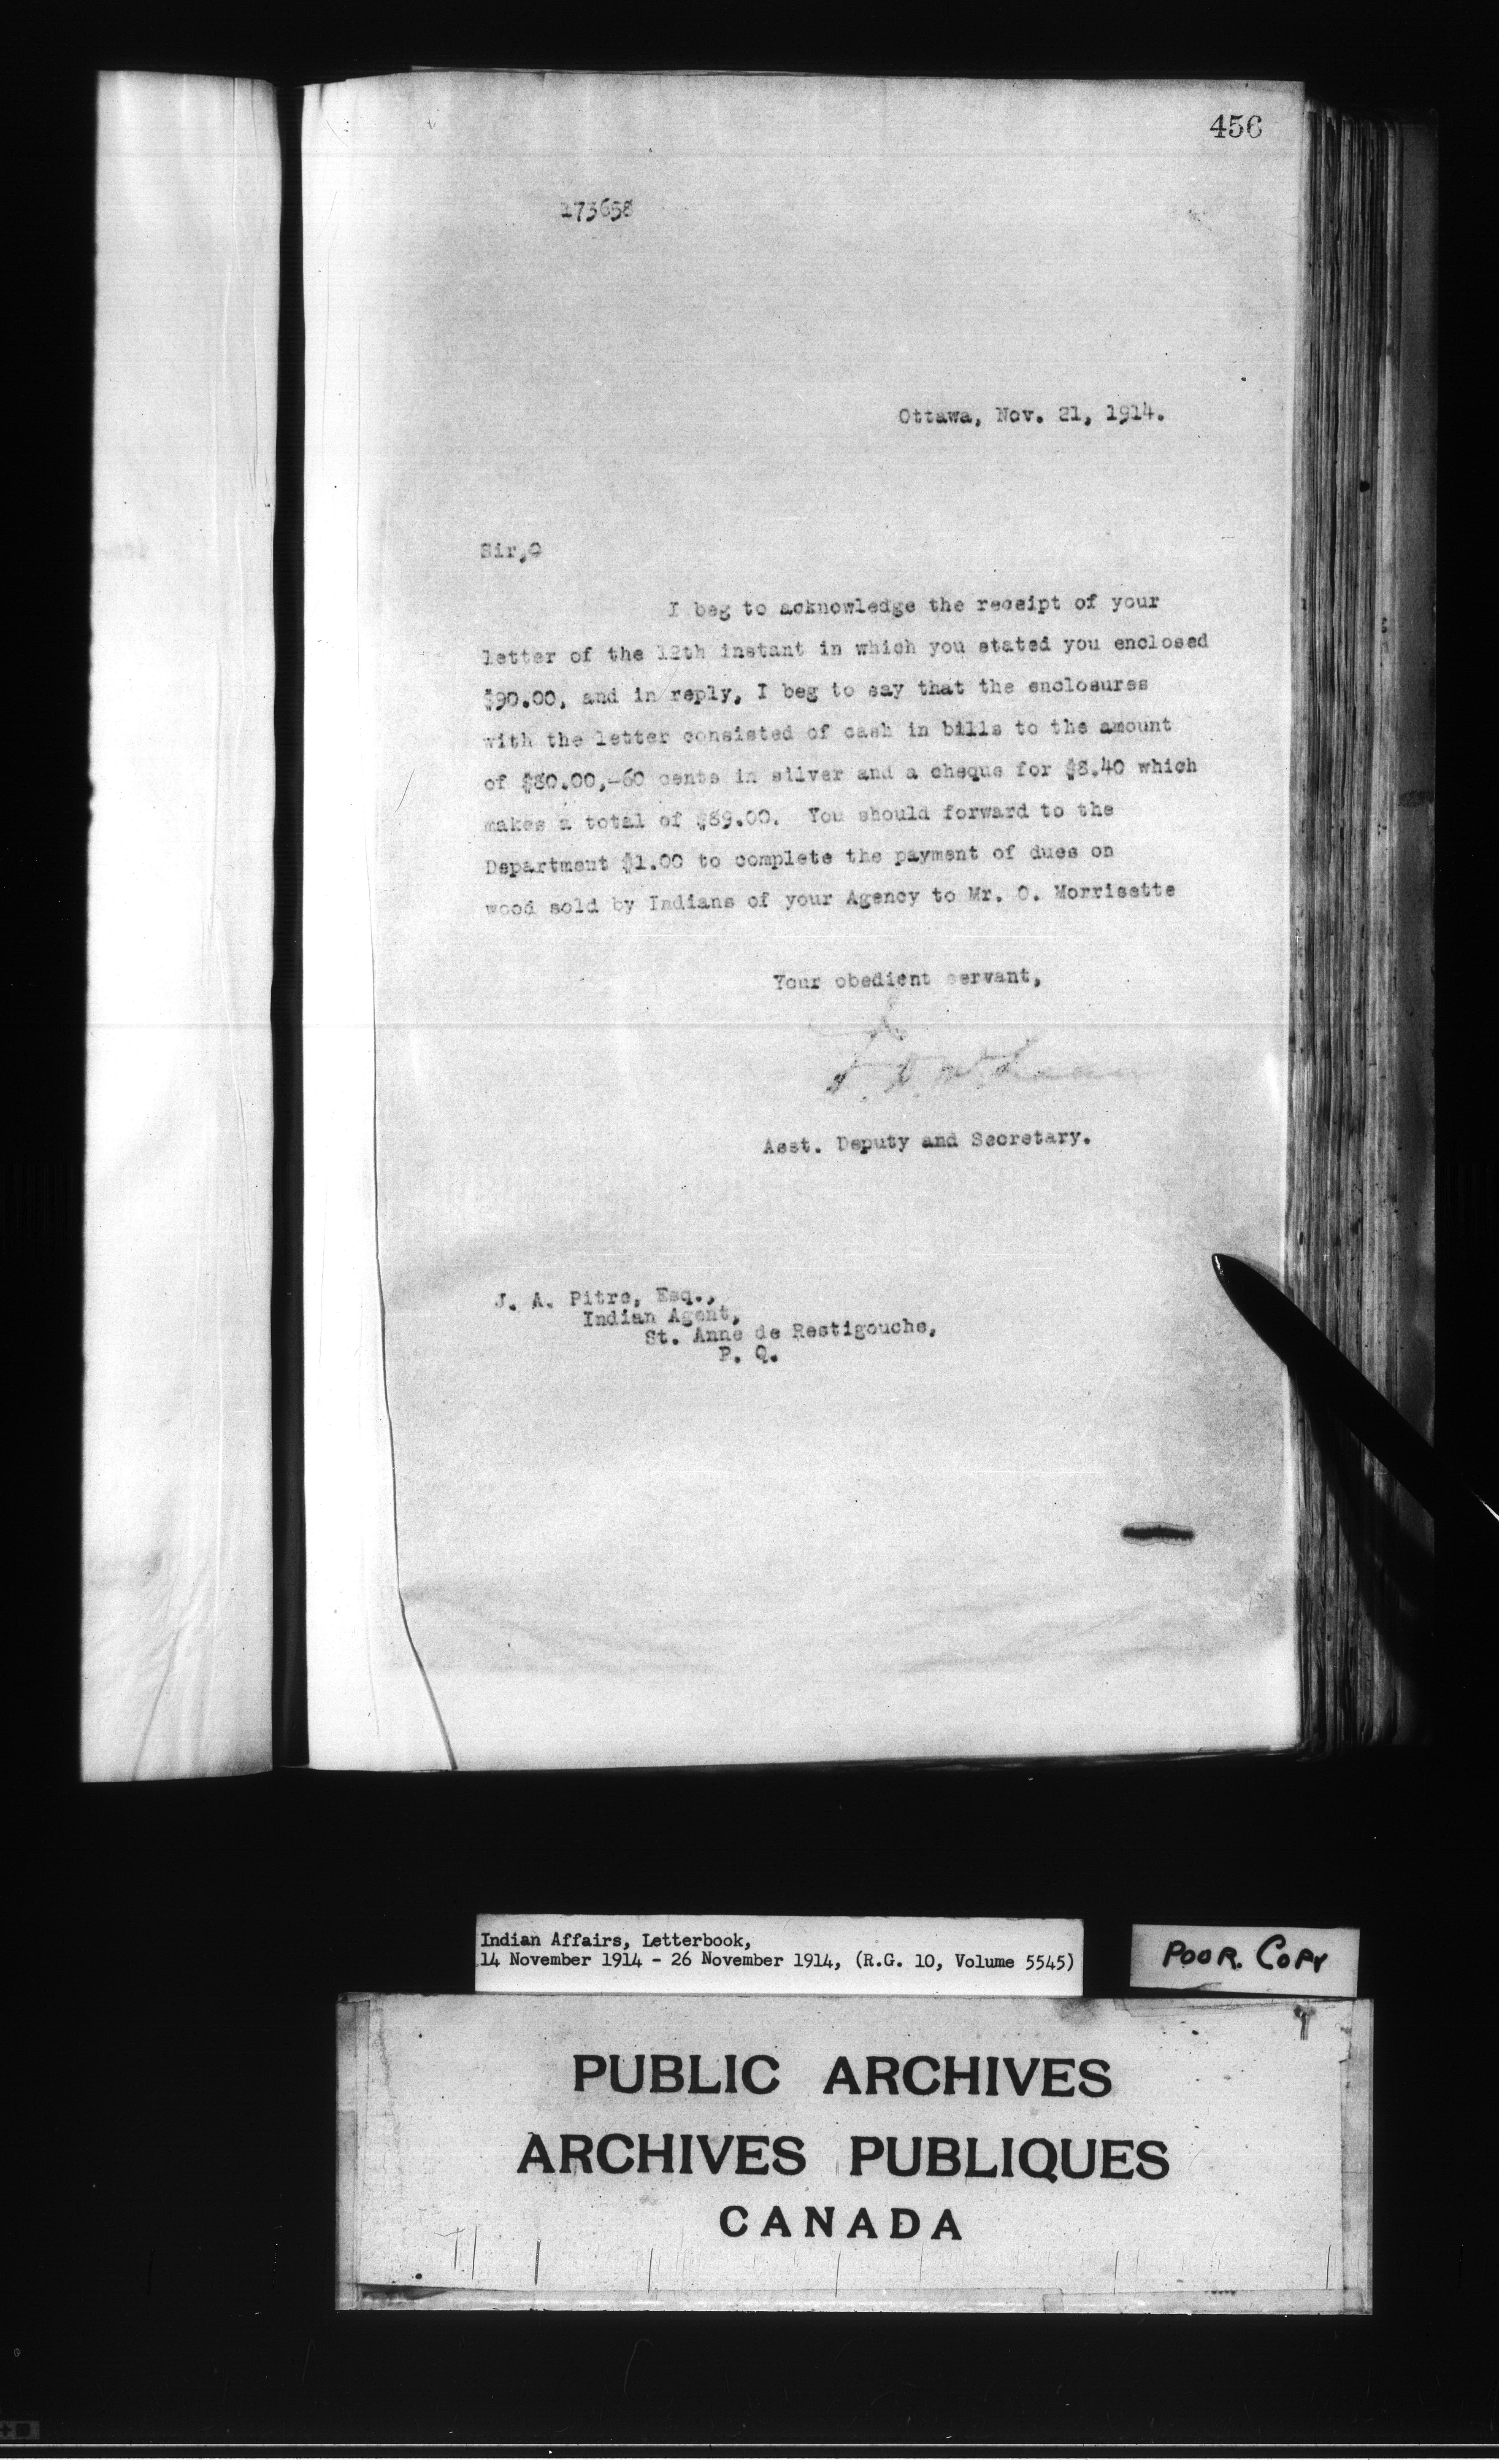 456
173658
Ottawa, Nov. 21, 1914.
Sir,O
I beg to acknowledge the receipt of your
letter of the 12th instant in which you stated you enclosed
$90.00, and in reply, I beg to say that the enclosures
with the letter consisted of cash in bills to the amount
of $80.00,-60 cents in silver and a cheque for $8.40 which
makes a total of $89.00. You should forward to the
Department $1.00 to complete the payment of dues on
wood sold by Indians of your Agency to Mr. O. Morrisette
Your obedient servant,
Asst. Deputy and Secretary.
J. A. Pitre, Esq.,
Indian Agent,
St. Anne de Restigouche,
P. Q.
Indian Affairs, Letterbook,
14 November 1914 - 26 November 1914, (R.G. 10, Volume 5545)
POOR. COPY
PUBLIC ARCHIVES
ARCHIVES PUBLIQUES
CANADA